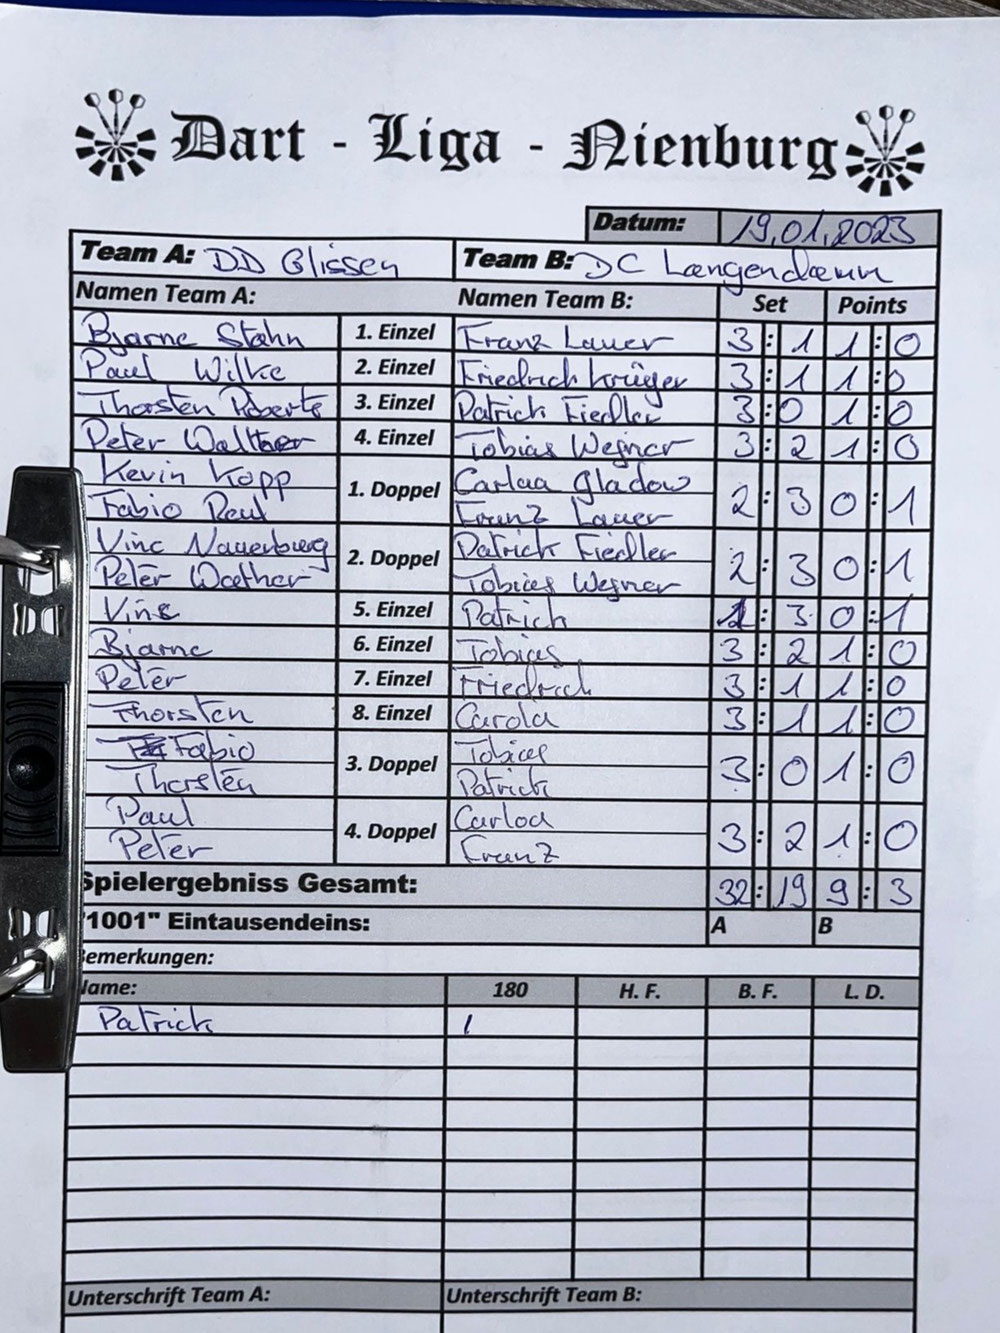 Dart - Liga - Nienburg
Datum: 19.01.2023
Team A: DD Glissen Team B: DC Langendamm
Namen Team A: Namen Team B: Set Points
Bjarne Stahn 1. Einzel Franz Lauer 3 : 1 1 : 0
Paul Wilke 2. Einzel Friedrich Krüger 3 : 1 1 : 0
Thorsten Roberts 3. Einzel Patrick Fiedler 3 : 0 1 : 0
Peter Walther 4. Einzel Tobias Wegner 3 : 2 1 : 0
Kevin Kopp Carlaa Gladow
1. Doppel 2 : 3 0 : 1
Fabio Paul Franz Lauer
Vinc Nauerburg Patrick Fiedler
2. Doppel 2 : 3 0 : 1
Peter Walther Tobias Wegner
Vinc 5. Einzel Patrick : 3 0 : 1
Bjarne 6. Einzel Tobias 3 : 2 1 : 0
Peter 7. Einzel Friedrich 3 : 1 1 : 0
Thorsten 8. Einzel Carola 3 : 1 1 : 0
Fabio Tobias
3. Doppel 3 : 0 1 : 0
Thorsten Patrick
Paul Carloa
4. Doppel 3 : 2 1 : 0
Peter Franz
Spielergebniss Gesamt: 32 : 19 9 : 3
"1001" Eintausendeins: A B
emerkungen:
ame: 180 H. F. B. F. L. D.
Patrick 1
Unterschrift Team A: Unterschrift Team B: